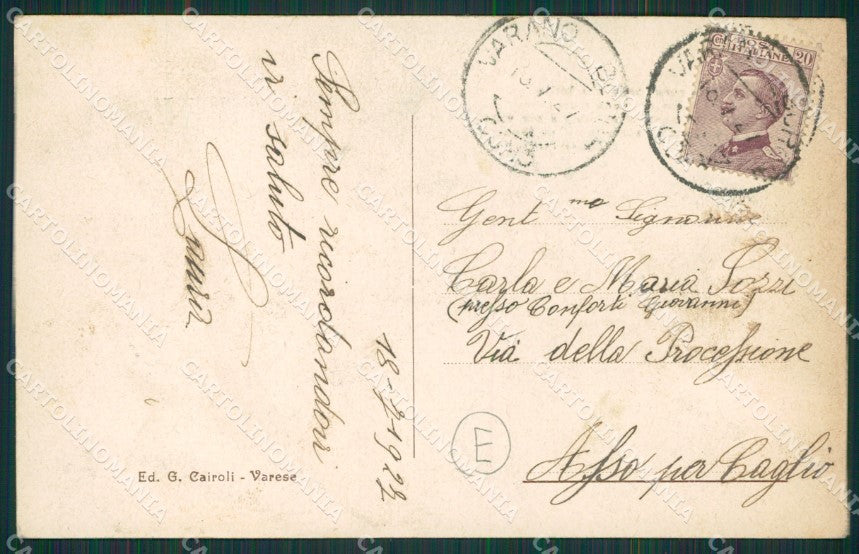 Sempre ricordandovi
vi saluto
Laura
18-7-1922
Ed. G. Cairoli - Varese
VARANO
COMO
POSTE ITALIANE 20
Gent.ma Signorine
Carla e Maria Pozzi
(presso Conforti Giovanni)
Via della Processione
Asso per Caglio
E
CARTOLINOMANIA